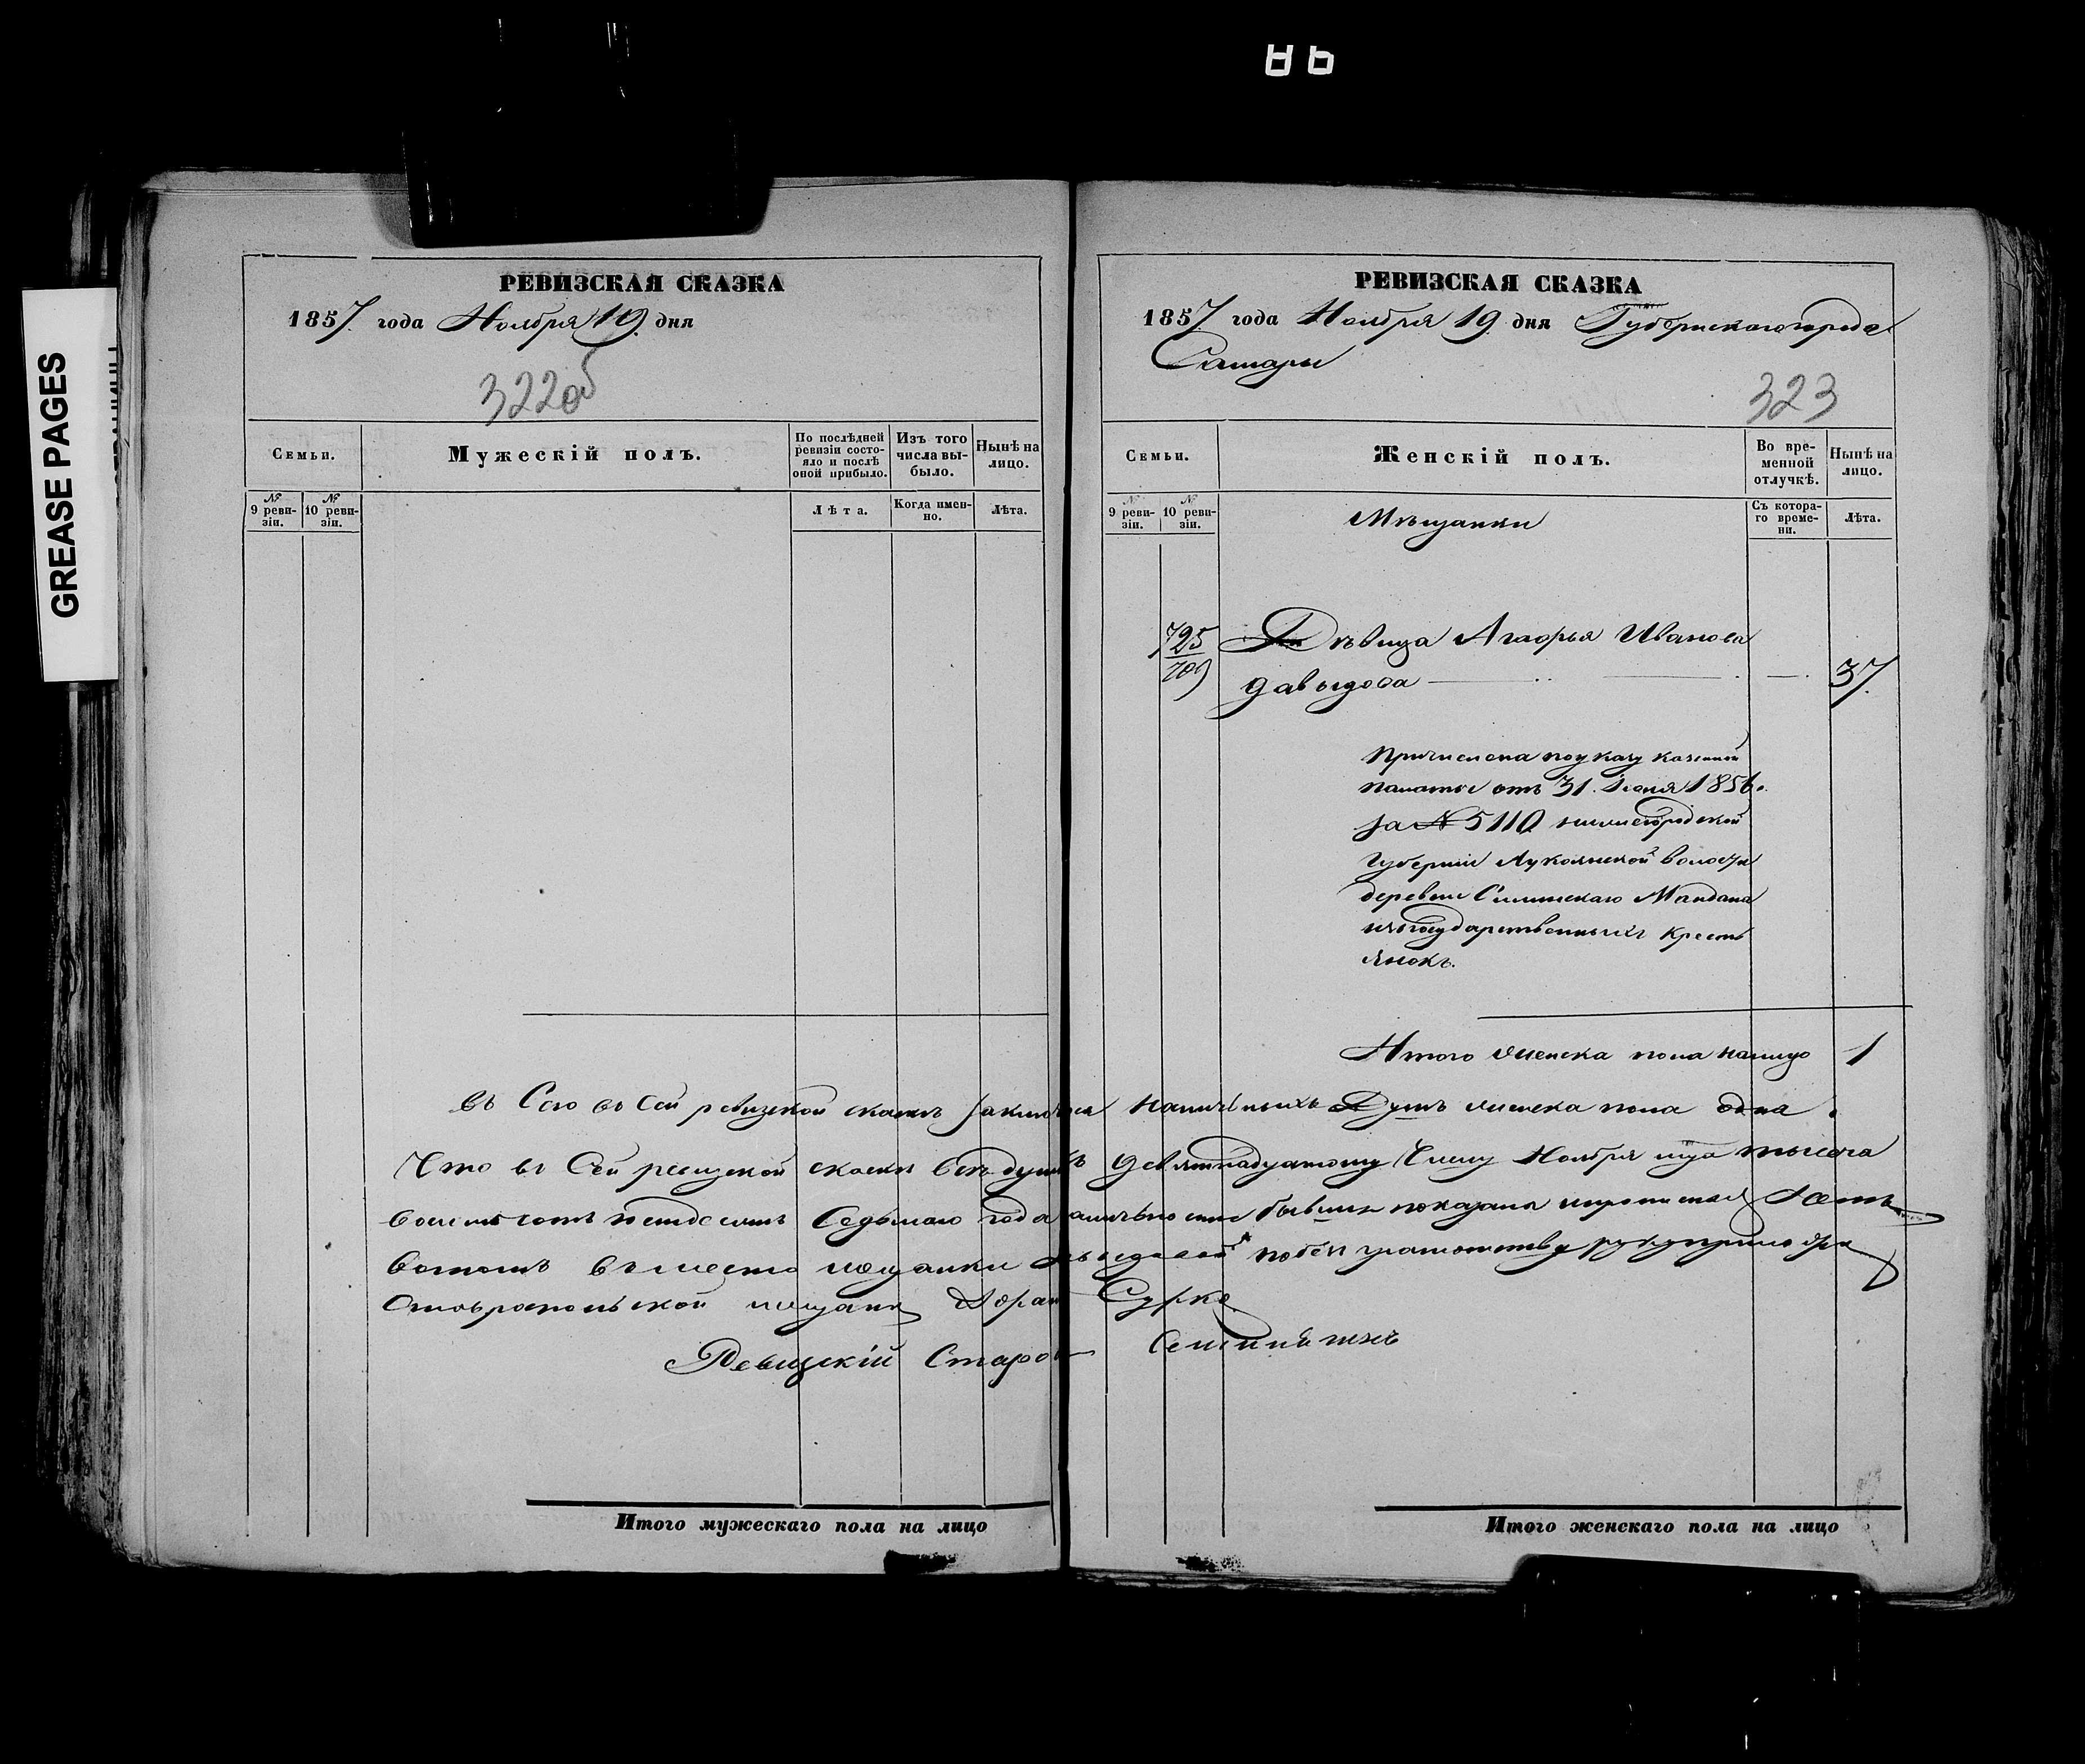 GREASE PAGES
РЕВИЗСКАЯ СКАЗКА
1857 года Ноября 19 дня
322об
Семьи.
Мужескій полъ.
По послѣдней ревизіи состояло и послѣ оной прибыло.
Изъ того числа выбыло.
Нынѣ на лицо.
№ 9 ревизіи.
№ 10 ревизіи.
Лѣта.
Когда именно.
Лѣта.
РЕВИЗСКАЯ СКАЗКА
1857 года Ноября 19 дня Губернскаго города
Самары
323
Семьи.
Женскій полъ.
Во временной отлучкѣ.
Нынѣ на лицо.
№ 9 ревизіи.
№ 10 ревизіи.
Мѣщанки
Съ котораго времени.
Лѣта.
725
709
Дѣвица Иванова
Давыдова 37.
Причислена по указу казенной
палаты отъ 31 1856.
за № 5110 нижегородской
Губерніи Лукояновской волости
деревни Майдана
изъ государственныхъ кресть
янокъ.
Итого женска пола налицо 1
въ сей ревизской сказкѣ наличныхъ Душъ женска пола одна
Что въ Сей ревизской сказкѣ всѣ души къ девятнадцатому Числу Ноября тысяча
восемьсотъ пятдесятъ Седьмаго года показаны
вотомъ вместо мещанки
Ревизскій
Итого мужескаго пола на лицо
Итого женскаго пола на лицо